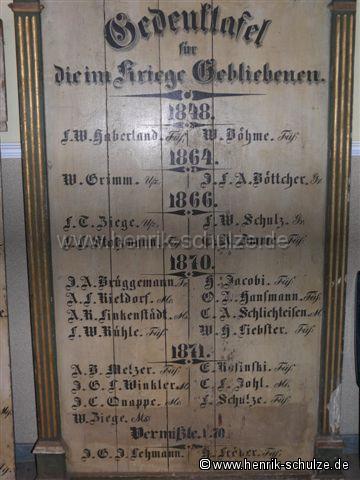 Gedenktafel
für
die im Kriege Gebliebenen.
1848.
F. W. Haberland. Füs. W. Böhme. Füs.
1864.
W. Grimm. Uz. J. F. A. Böttcher. Gr.
1866.
F. T. Ziege. Uz. F. W. Schulz. Gr.
www.henrik-schulze.de
1870.
J. A. Brüggemann. Gr. H. Jacobi. Füs.
A. F. Rieldorf. Ms. O. Hansmann. Füs.
A. R. Linkenstädt. Ms. C. A. Schlichteisen M.
F. W. Rühle. Füs. W. H. Liebster. Füs.
1871.
A. B. Metzer. Füs. E. Rosinski. Füs.
J. G. F. Winkler. Ms. C. F. Johl. Ms.
J. C. Quappe. Ms. F. Schulze. Füs.
W. Ziege. Ms.
Vermißte. 1870.
J. G. J. Lehmann. Füs.
© www.henrik-schulze.de